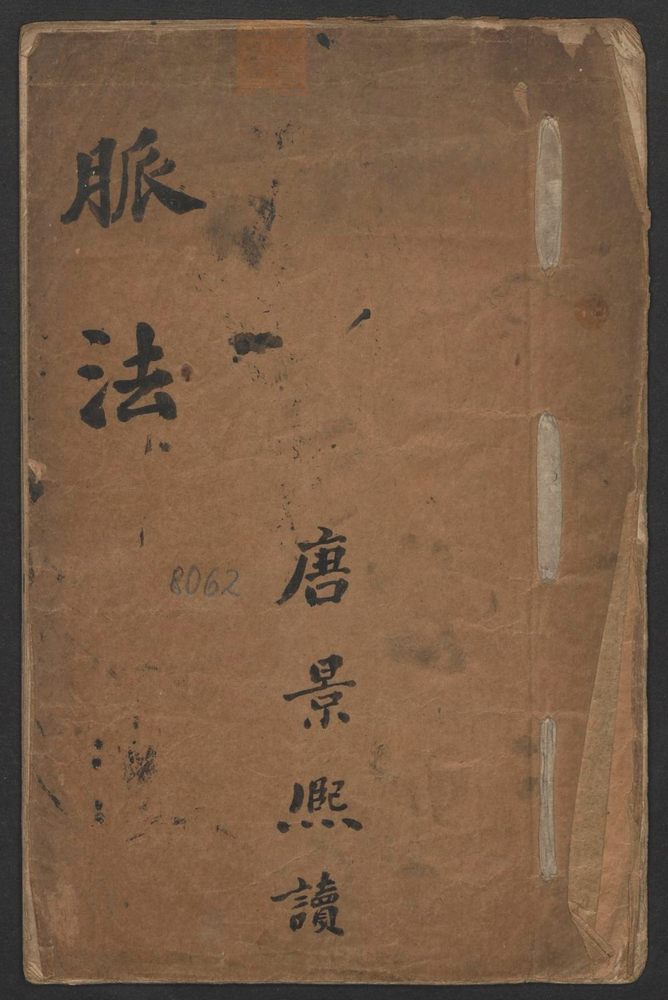 脈法
唐景熈讀
8062